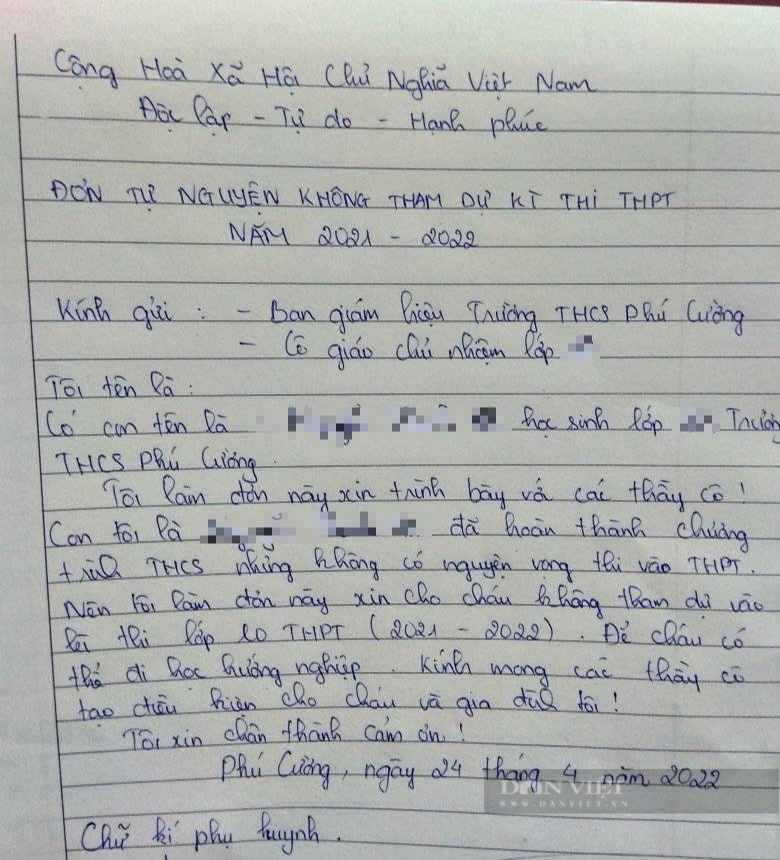 Cộng Hoà Xã Hội Chủ Nghĩa Việt Nam
Độc lập - Tự do - Hạnh phúc
ĐƠN TỰ NGUYỆN KHÔNG THAM DỰ KÌ THI THPT
NĂM 2021 - 2022
Kính gửi : - Ban giám hiệu Trường THCS Phú Cường
- Cô giáo chủ nhiệm lớp
Tôi tên là :
Có con tên là học sinh lớp Trường
THCS Phú Cường.
Tôi làm đơn này xin trình bày vả các thầy cô !
Con tôi là đã hoàn thành chương
trình THCS nhưng không có nguyện vọng thi vào THPT.
Nên tôi làm đơn này xin cho cháu không tham dự vào
kì thi lớp 10 THPT (2021 - 2022). Để cháu có
thể đi học hướng nghiệp. Kính mong các thầy cô
tạo điều kiện cho cháu và gia đình tôi !
Tôi xin chân thành cảm ơn !
Phú Cường, ngày 24 tháng 4 năm 2022
DÂN VIỆT
WWW.DANVIET.VN
Chữ kí phụ huynh.